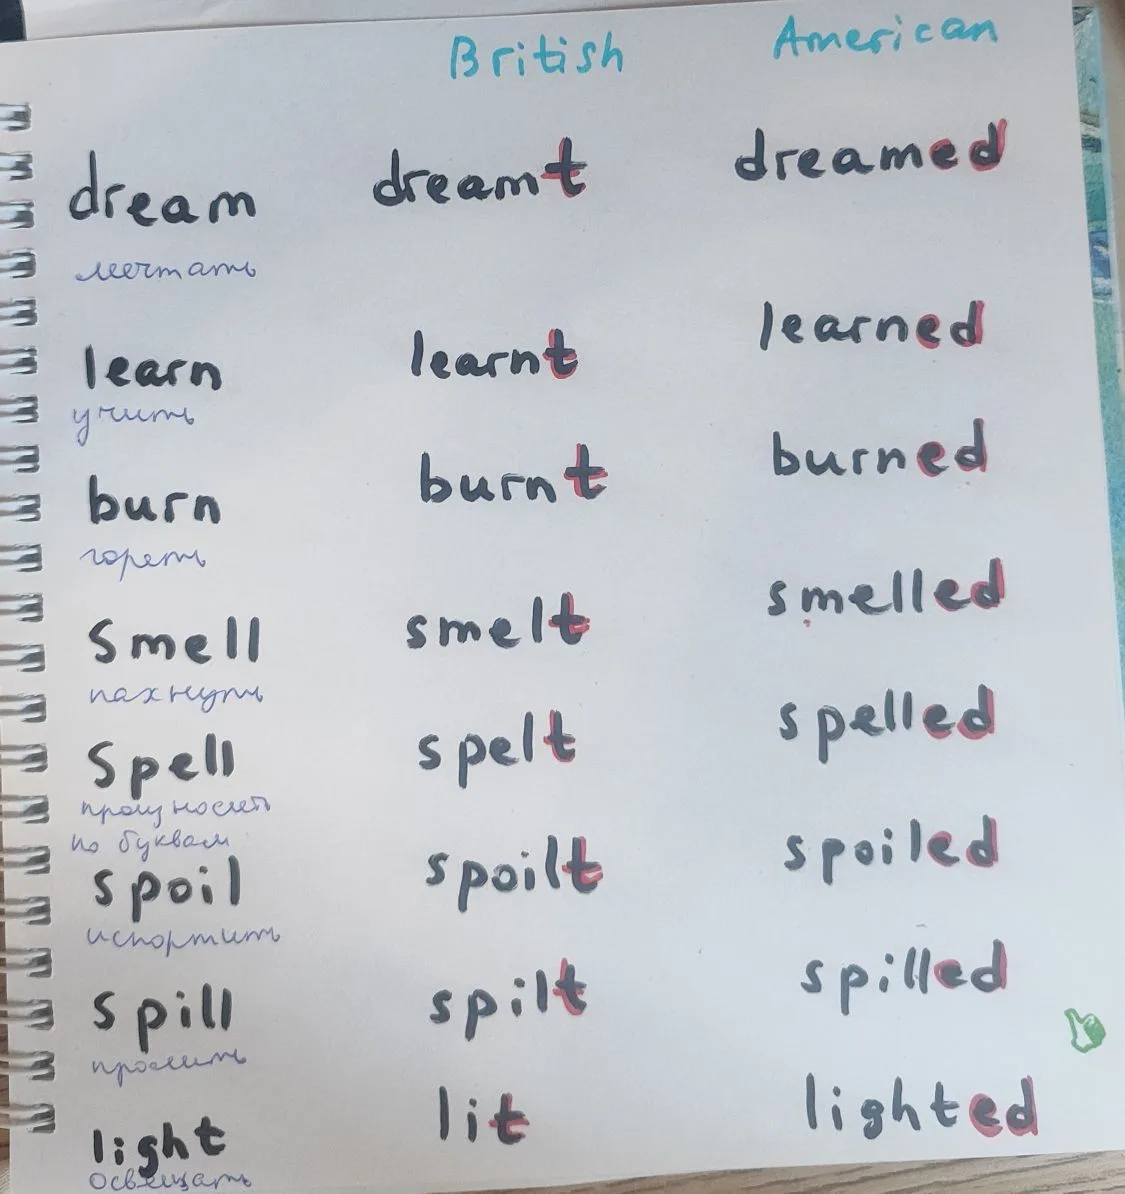 British American
dream dreamt dreamed
мечтать
learn learnt learned
учить
burn burnt burned
гореть
smell smelt smelled
пахнуть
spell spelt spelled
произносить
по буквам
spoil spoilt spoiled
испортить
spill spilt spilled
пролить
light lit lighted
освещать